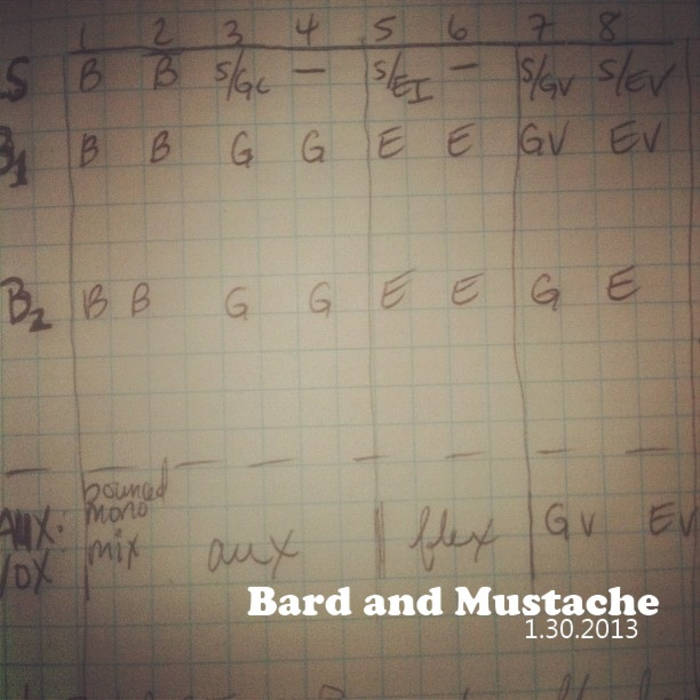 1 2 3 4 5 6 7 8
S B B S/GC — S/EI — S/GV S/EV
B1 B B G G E E GV EV
B2 B B G G E E G E
bounced
AUX: mono GV EV
VOX mix aux flex
Bard and Mustache
1.30.2013